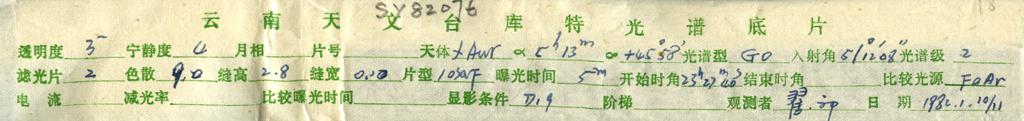 SY82076
云南天文台库特光谱底片
透明度 3 宁静度 4 月相 片号 天体 α Aur α 5h13m ∝ +45°58′ 光谱型 G0 入射角 51°12′08″ 光谱级 2
滤光片 2 色散 9.0 缝高 2.8 缝宽 0.20 片型 103aF 曝光时间 5m 开始时角 23h27m40s 结束时角 比较光源 FeAr
电流 减光率 比较曝光时间 显影条件 D19 阶梯 观测者 日期 1982.1.10/11